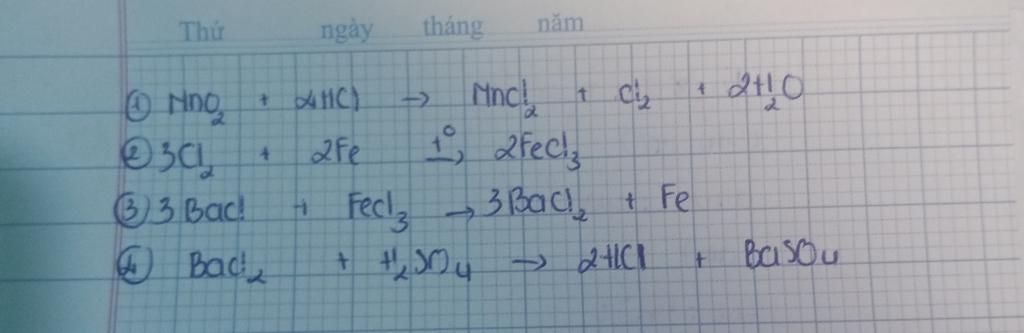 Thứ ngày tháng năm
① MnO₂ + 4HCl → MnCl₂ + Cl₂ + 2H₂O
② 3Cl₂ + 2Fe t°→ 2FeCl₃
③ 3BaCl + FeCl₃ → 3BaCl₂ + Fe
④ BaCl₂ + H₂SO₄ → 2HCl + BaSO₄